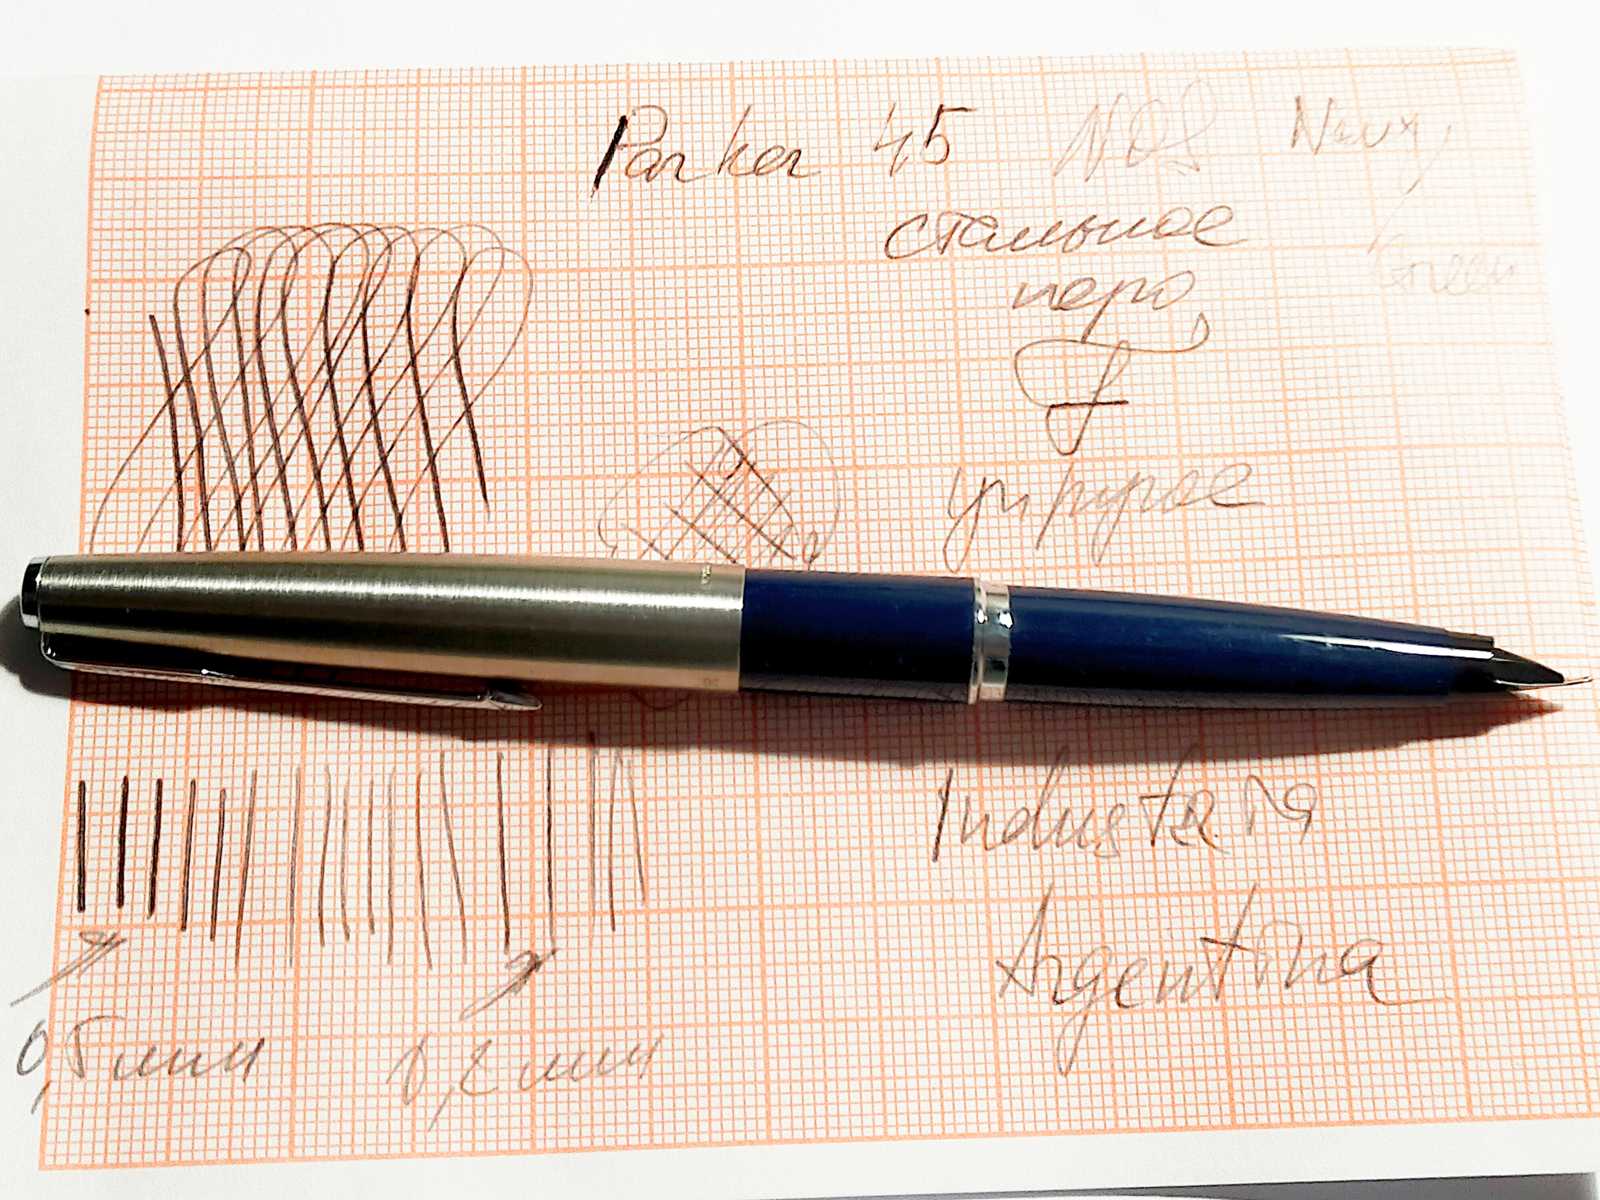 Parker 45 NOS Navy
стальное
Green
перо
F
упругое
Industria
Argentina
0,5 мм 0,2 мм